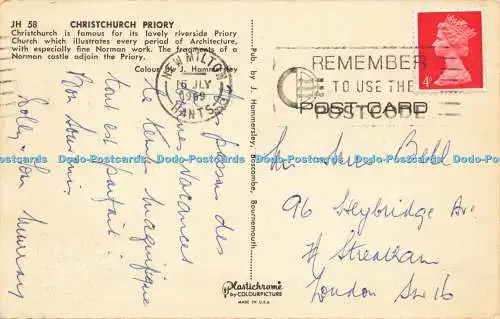 JH 58 CHRISTCHURCH PRIORY
Christchurch is famous for its lovely riverside Priory
Church which illustrates every period of Architecture,
with especially fine Norman work. The fragments of a
Norman castle adjoin the Priory.
Colour by J. Hammersley
NEW MILTON
16 JLY
1969
HANTS
REMEMBER
TO USE THE
POSTCODE
POST CARD
4P
Pub. by J. Hammersley, Boscombe, Bournemouth.
passons des
vacances
Le temps magnifique
tout est parfait!
Bon Souvenir
Murray
Bell
96 Heybridge Av.
Streatham
London SW16
Plastichrome
by COLOURPICTURE
MADE IN U.S.A.
Dodo-Postcards Dodo-Postcards Dodo-Postcards Dodo-Postcards Dodo-Postcards Dodo-Postcards